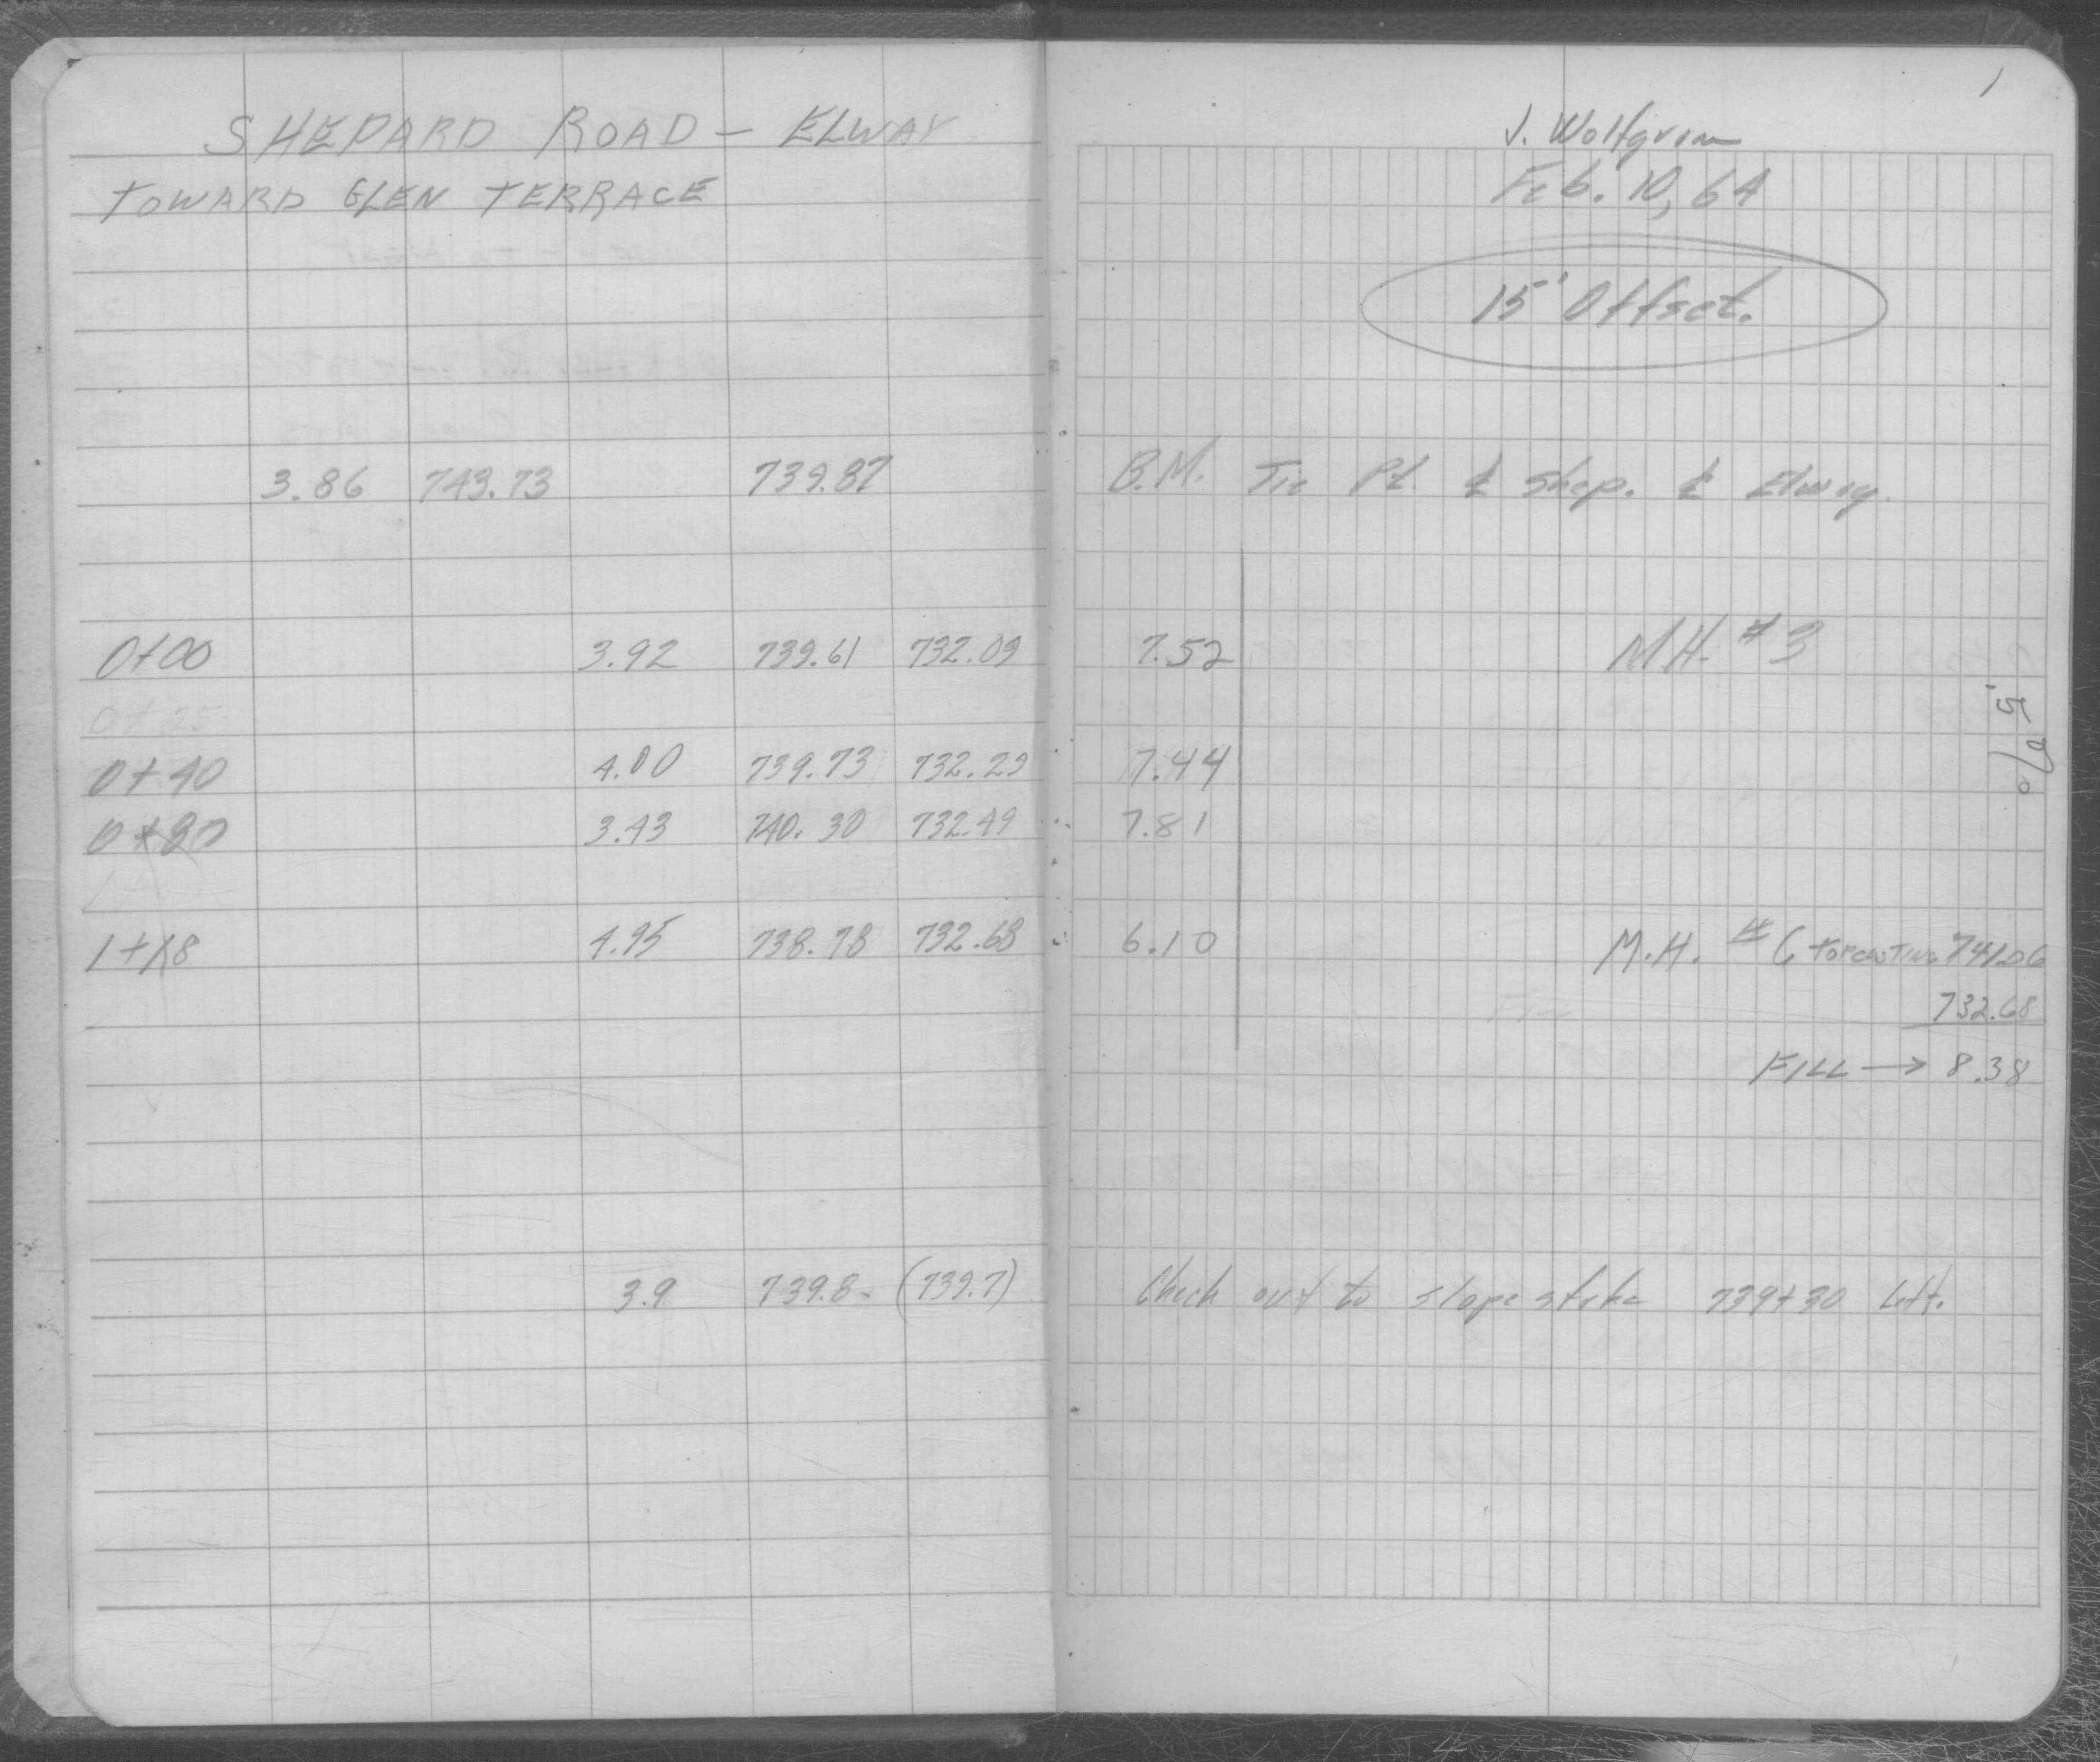 SHEPARD ROAD - ELWAY
TOWARD GLEN TERRACE
3.86 743.73 739.87
0+00 3.92 739.61 732.09
0+25
0+40 4.00 739.73 732.29
0+80 3.43 740.30 732.49
1+18 4.95 738.78 732.68
3.9 739.8 - (739.7)
1
J. Wolfgram
Feb. 10, 64
15' Offset.
B.M. Tie Pt. ℄ Shep. ℄ Elway.
7.52 M.H. #3
.5%
7.44
7.81
6.10 M.H. #6 TOP CASTING 741.06
732.68
FILL → 8.38
Check out to slope stake 739+30 Left.